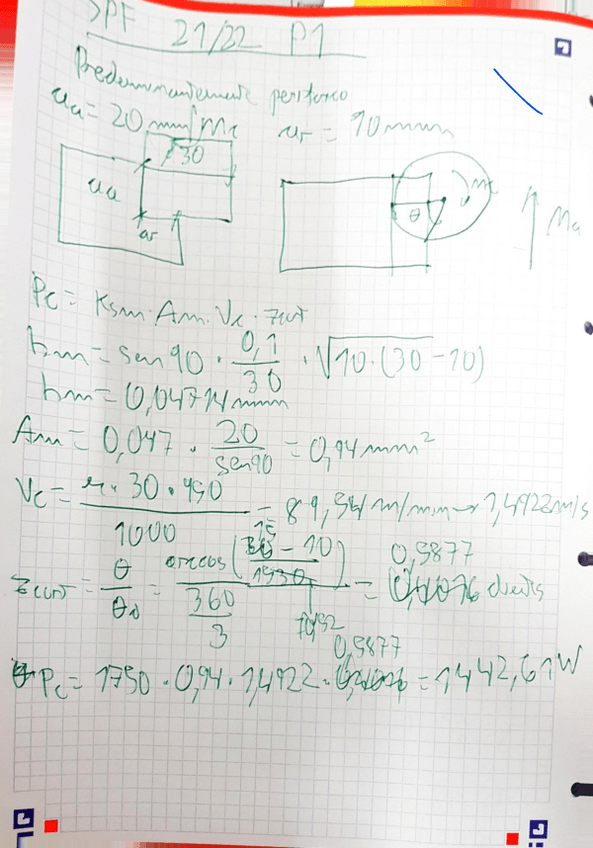 SPF 21/22 P1
Predominantemente periferico
aa = 20 mm ar = 10 mm
30
aa
ar
θ
Ma
Pc = Ksm · Am · Vc · zcut
hm = sen 90 · 0,1/30 · √10·(30-10)
hm = 0,04714 mm
Am = 0,047 · 20/sen 90 = 0,94 mm²
Vc = π · 30 · 950/1000 = 89,54 m/min → 1,4922 m/s
zcut = θ/θ0 = arccos(15 - 10/15)/360/3 = 0,5877
0,5877
Pc = 1750 · 0,94 · 1,4922 · = 1442,61 W